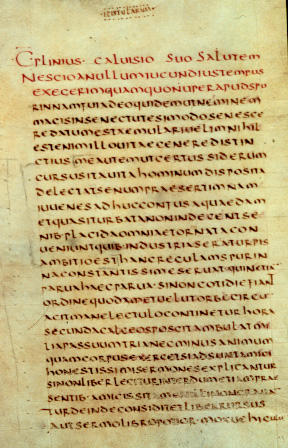 EPISTULARUM
C PLINIUS· CALUISIO SUO SALUTEM
NESCIO AN ULLUM IUCUNDIUS TEMPUS
EXEGERIM QUAM QUO NUPER APUD SPU
RINNAM FUI ADEO QUIDEM UT NEMINEM
MAGIS IN SENECTUTE SI MODO SENESCE
RE DATUM EST AEMULARI UELIM NIHIL
EST ENIM ILLO UITAE GENERE DISTIN
CTIUS ME AUTEM UT CERTUS SIDERUM
CURSUS ITA UITA HOMINUM DISPOSITA
DELECTAT SENUM PRAESERTIM NAM
IUUENES ADHUC CONFUSA QUAEDAM
ET QUASI TURBATA NON INDECENT SE
NIB· PLACIDA OMNIA ET ORNATA CON
UENIUNT QUIB· INDUSTRIA SERA TURPIS
AMBITIO EST HANC REGULAM SPURIN
NA CONSTANTISSIME SERUAT QUIN ETIA
PARUA HAEC PARUA· SI NON COTIDIE FIANT
ORDINE QUODAM ET UELUT ORBE CIRCU
AGIT MANE LECTULO CONTINETUR HORA
SECUNDA CALCEOS POSCIT AMBULAT MI
LIA PASSUUM TRIA NEC MINUS ANIMUM
QUAM CORPUS EXERCET SI ADSUNT AMICI
HONESTISSIMI SERMONES EXPLICANTUR
SI NON LIBER LEGITUR INTERDUM ETIAM PRAE
SENTIB· AMICIS SI TAMEN ILLI NON GRAUAN
TUR DEINDE CONSIDIT ET LIBER RURSUS
AUT SERMO LIBRO POTIOR· MOX UEHICULU